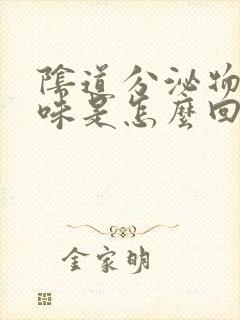 陰道分泌物
味是怎麼回
金家明